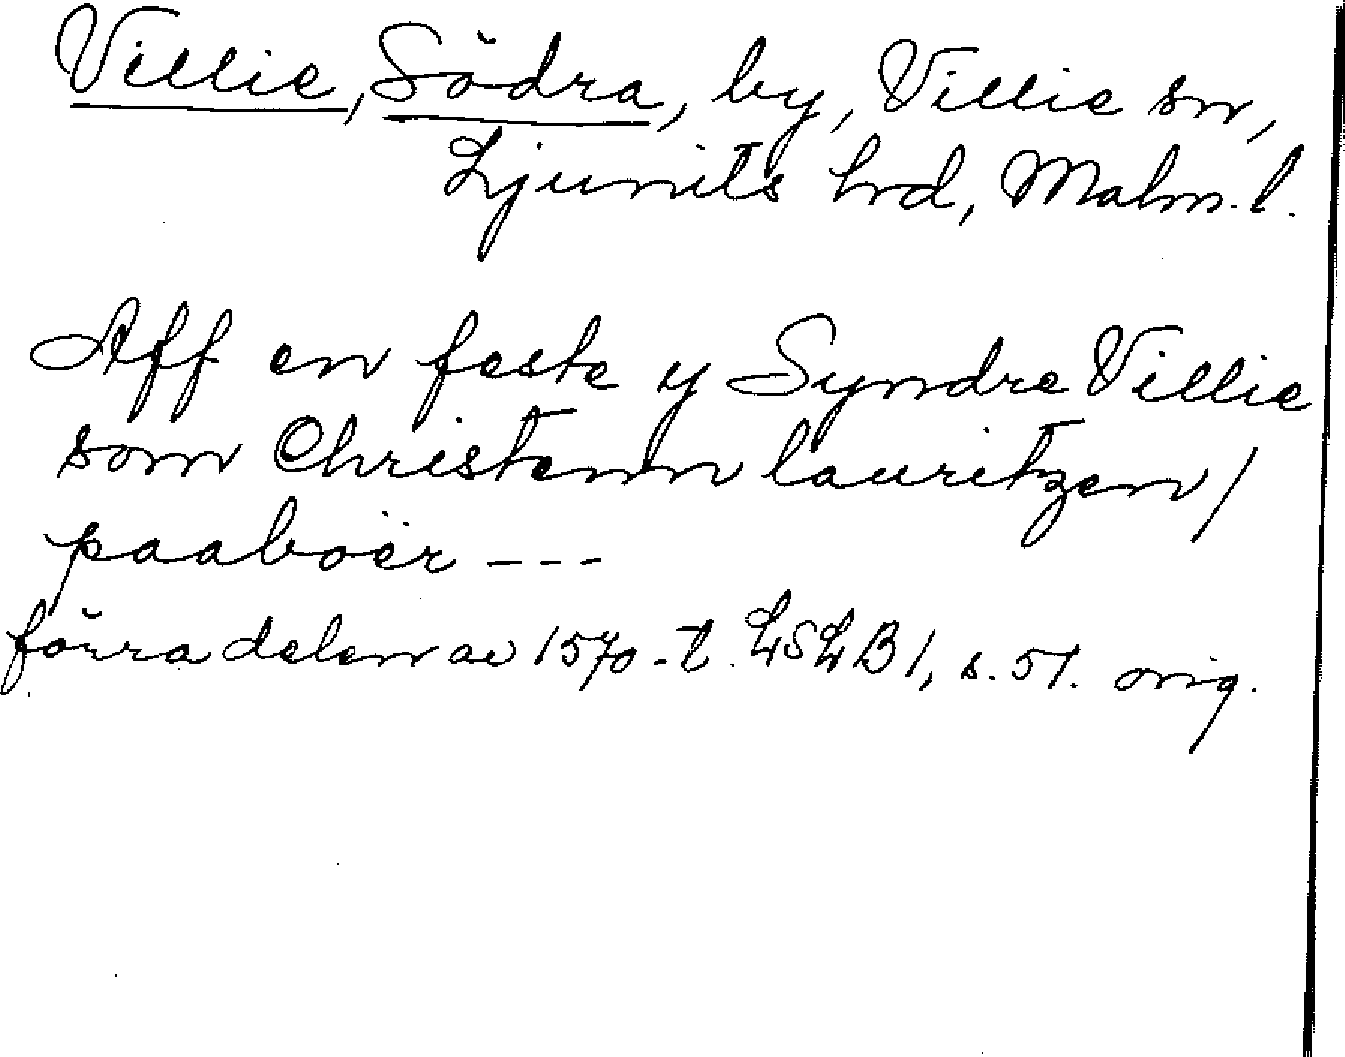 Villie, Södra, by, Villie sn,
Ljunits hrd, Malm. l.
Aff en feste y Syndre Villie
som Christenn lauritzen /
paaboër ---
förra delen av 1570-t. LSLB 1, s. 51. orig.